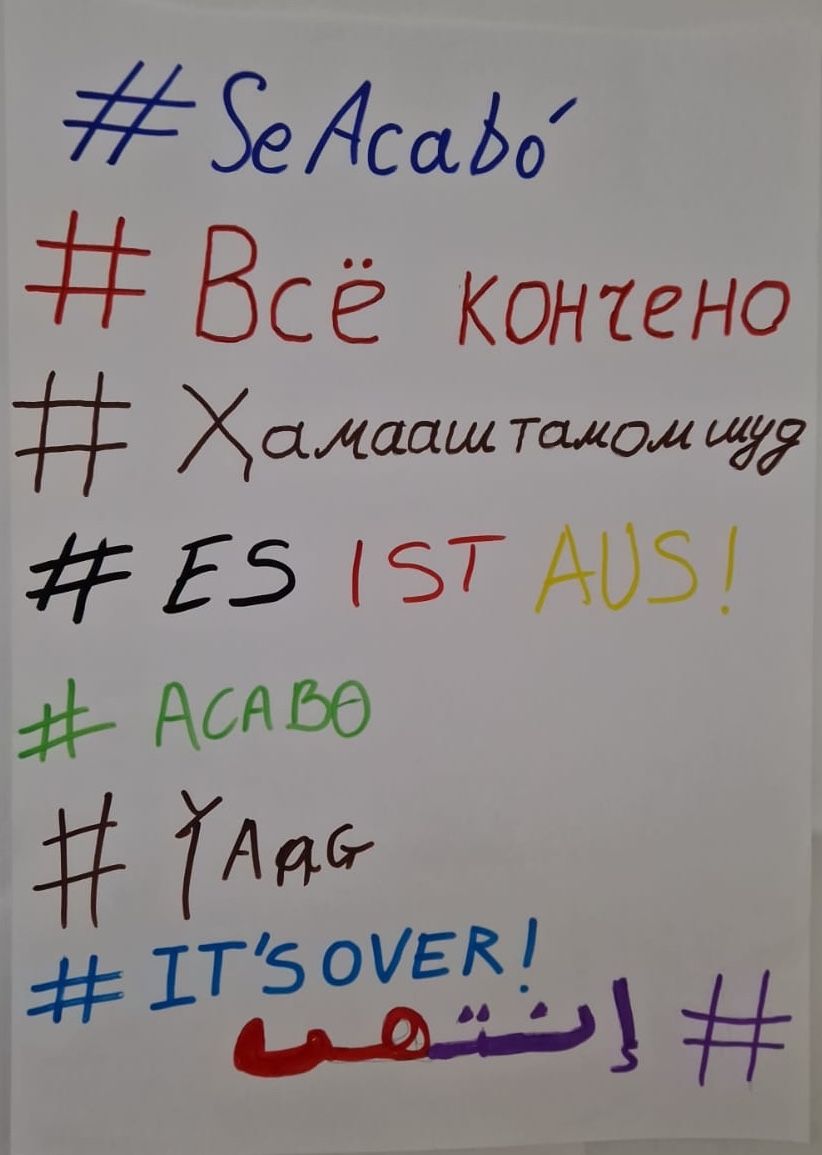 #SeAcabó
# Всё кончено
# Ҳамааш тамом шуд
# ES IST AUS!
# ACABO
# IT'S OVER!
# إنتهى